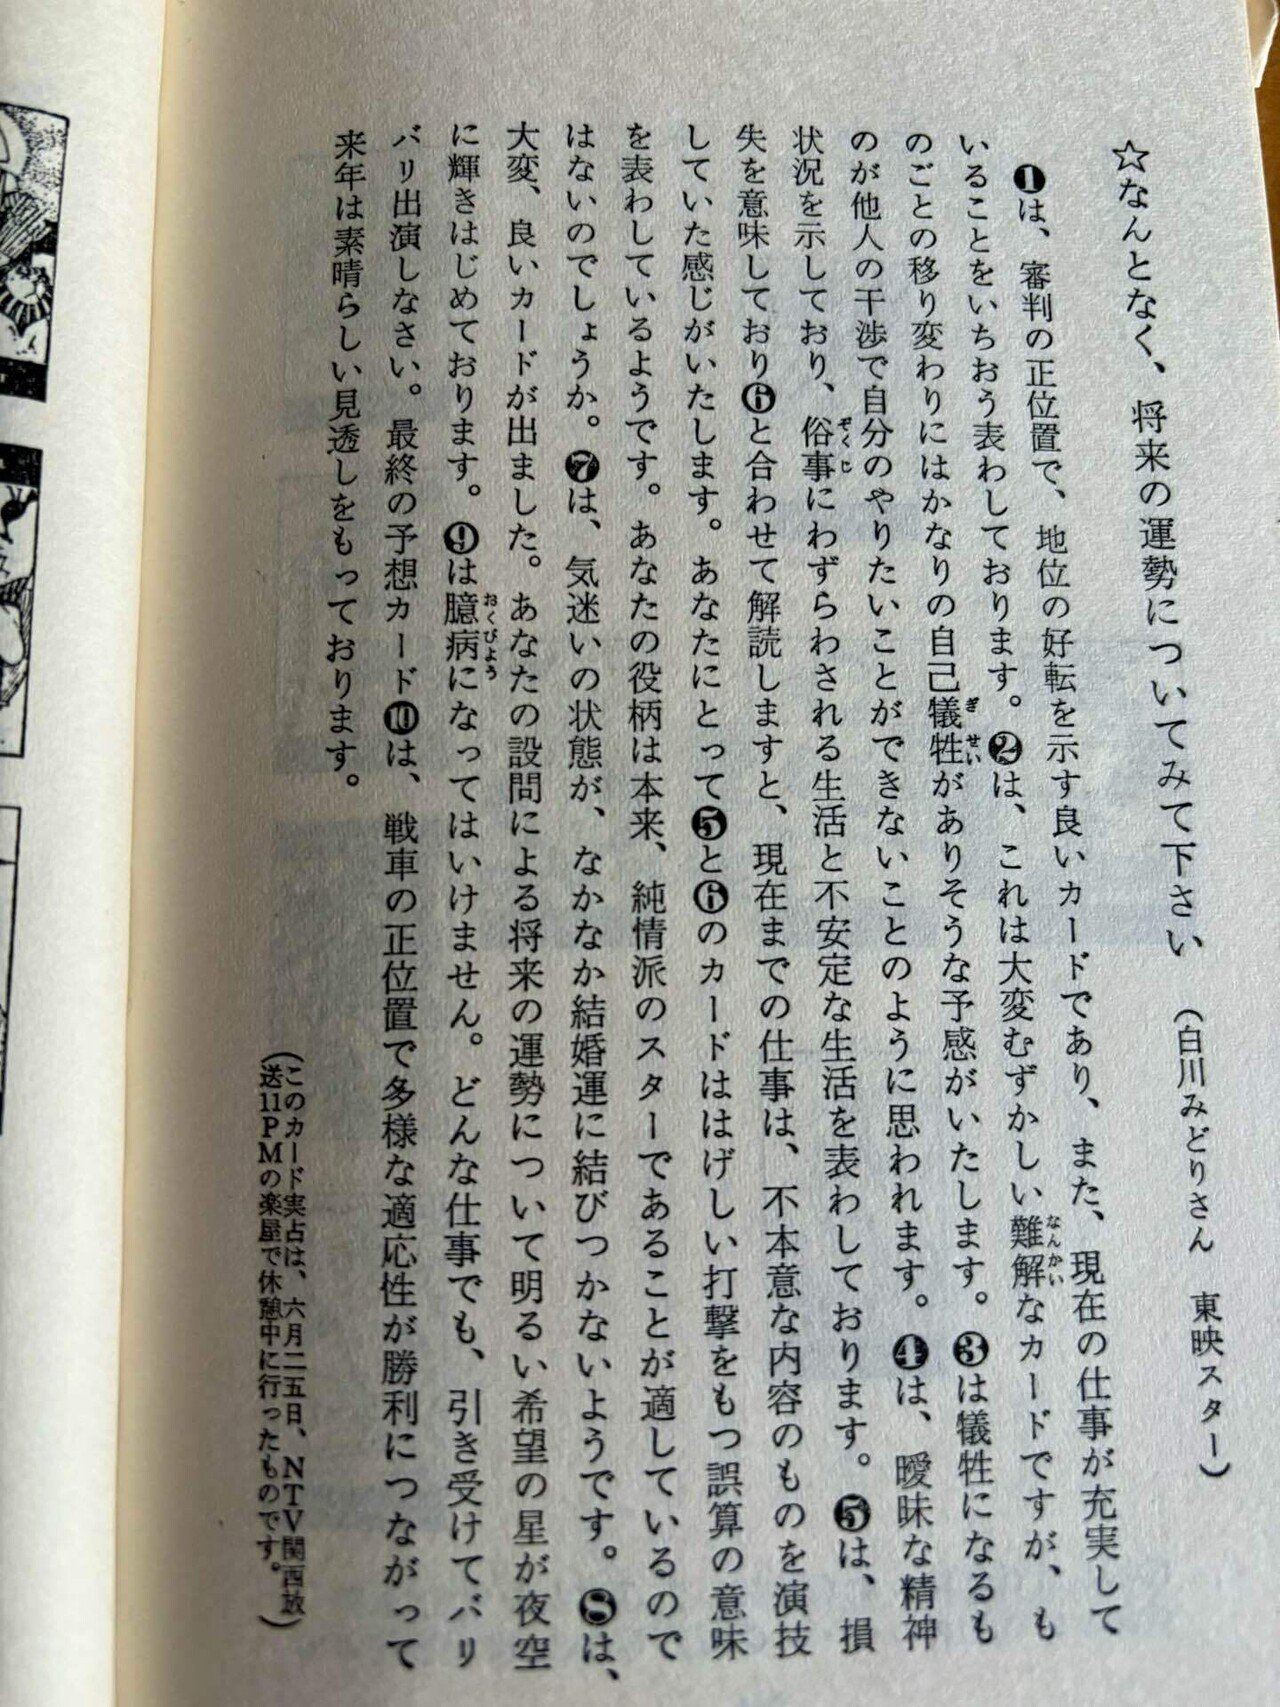 ☆なんとなく、将来の運勢についてみて下さい　（白川みどりさん　東映スター）
❶は、審判の正位置で、地位の好転を示す良いカードであり、また、現在の仕事が充実して
いることをいちおう表わしております。❷は、これは大変むずかしい難解なカードですが、も
のごとの移り変わりにはかなりの自己犠牲がありそうな予感がいたします。❸は犠牲になるも
のが他人の干渉で自分のやりたいことができないことのように思われます。❹は、曖昧な精神
状況を示しており、俗事にわずらわされる生活と不安定な生活を表わしております。❺は、損
失を意味しており❻と合わせて解読しますと、現在までの仕事は、不本意な内容のものを演技
していた感じがいたします。あなたにとって❺と❻のカードははげしい打撃をもつ誤算の意味
を表わしているようです。あなたの役柄は本来、純情派のスターであることが適しているので
はないのでしょうか。❼は、気迷いの状態が、なかなか結婚運に結びつかないようです。❽は、
大変、良いカードが出ました。あなたの設問による将来の運勢について明るい希望の星が夜空
に輝きはじめております。❾は臆病になってはいけません。どんな仕事でも、引き受けてバリ
バリ出演しなさい。最終の予想カード❿は、戦車の正位置で多様な適応性が勝利につながって
来年は素晴らしい見透しをもっております。
（このカード実占は、六月二五日、NTV関西放
送11PMの楽屋で休憩中に行ったものです。）